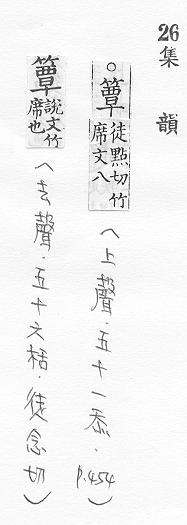 26
集韻
○簟徒點切竹席文八（上聲．五十一忝．p.454）
簟說文竹席也（去聲．五十六栝．徒念切）